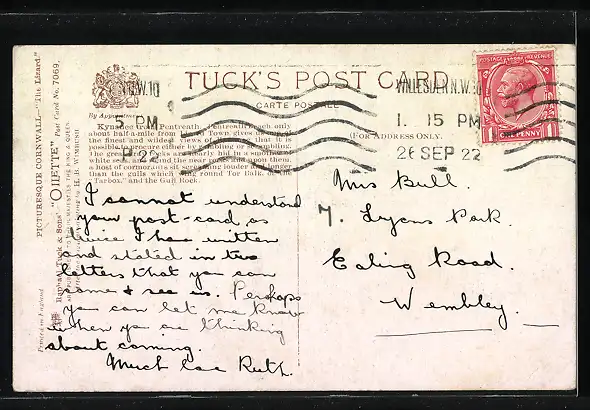 TUCK'S POST CARD
CARTE POSTALE
(FOR ADDRESS ONLY.
By Appointment
PICTURESQUE CORNWALL.—"The Lizard."
"OILETTE" Post Card No. 7069.
Raphael Tuck & Sons'
Printed in England
H. B. WIMBUSH
Kynance from Pentreath. Pentreath Beach only
about half-a-mile from Lizard Town gives one of
the finest and wildest views of
possible to procure either by sketching or scrambling.
white
a host of cormorants sit longer
than the gulls which round Tor Balk, or the
"Tarbox," and the Gull Rock.
N.W.10
5 PM
22
WILLESDEN N.W.10
1. 15 PM
26 SEP 22
POSTAGE REVENUE
1 ONE PENNY 1
I cannot understand
your post-card as
twice I have written
and stated in two
letters that you can
come & see us. Perhaps
you can let me know
when you are thinking
about coming.
Much love Ruth.
Mrs Bull.
7. Lyons Park.
Ealing Road.
Wembley.